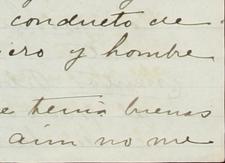 conducto de
ero y hombre
e tenia buenas
aun no me